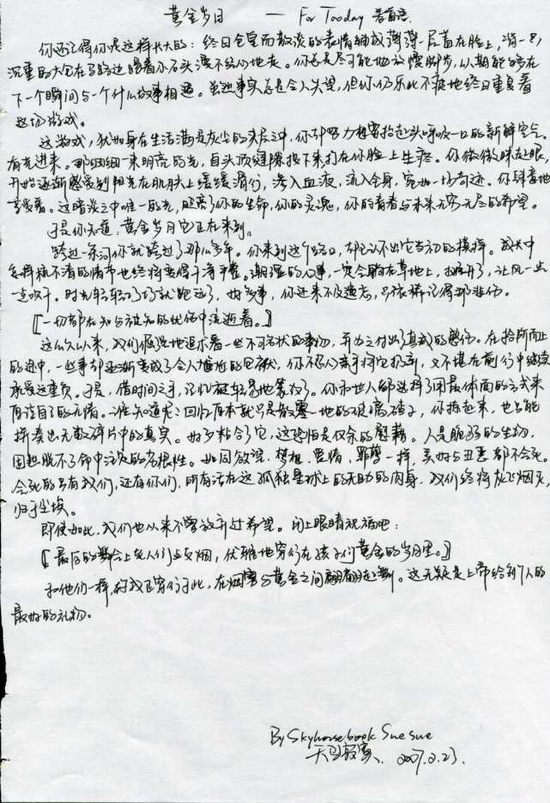 黄金岁月 —— For Tooday 卷首语
你还记得你是这样长大的：终日仓皇而散淡的表情铺成薄薄一层盖在脸上，背一只
沉重的大包在马路边踢着小石头漫不经心地走。你总是尽可能地放慢脚步，以期能够在
下一个瞬间与一个什么故事相遇。虽然事实总是令人失望，但你仍乐此不疲地终日重复着
这场游戏。
这游戏，犹如身在生活满是灰尘的夹层之中，你却努力想要抬起头呼吸一口的新鲜空气。
有光进来。那细细一束明亮的光，自头顶缝隙投下来打在你脸上生疼。你微微眯起眼，
开始逐渐感受到阳光在肌肤上缓缓滑行，渗入血液，流入全身，宛如一场奇迹。你
享受着。这暗淡之中唯一的光，照亮了你的生命，你的灵魂，你的青春与未来无穷无尽的希望。
于是你知道，黄金岁月它正在来到。
跨过一条河你就跨过了那么多年。你来到这个路口，却已认不出它当初的模样。
怎样模不清的情节也终将变得干净平整。潮湿的心事，一定会晒在草地上，摊开了，让风一点
一点吹干。时光轻轻一巧就跑远了，好多事，你还来不及遗忘，只依稀记得那悲伤。
〖一切都在知与被知的忧伤中流逝着。〗
这么久以来，我们倔强地追求着一些不可名状的事物，并为之付出了真诚的感伤。在拾阶而上
的途中，一些事却逐渐变成了令人尴尬的回放，你不忍亲手将它扔弃，又不堪在前行中继续
承受这重负。于是，借时间之手，记忆被轻易地篡改了。你和他人都选择了用最体面的方式来
原谅自己的无情。谁知道呢？回忆原本就只是散落一地的玻璃碴子，你捡起来，也只能
拼凑出无数碎片中的真实。好歹粘合了它，这恐怕是仅余的慰藉。人是脆弱的生物，
因摆脱不了命中注定的劣根性。如同欲望、梦想、爱情、罪孽一样，美好与丑恶都不会死。
会死的只有我们，还有你们，所有活在这孤独星球上的无助的肉身，我们终将灰飞烟灭，
归于尘埃。
即使如此，我们也从来不曾放弃过希望。闭上眼睛祝福吧：
〖最后的舞会上女人们点支烟，优雅地穿行在孩子们黄金的岁月里。〗
和他们一样，时我正穿行于此，在烟雾与黄金之间翩翩起舞。这无疑是上帝给每个人的
最好的礼物。
By Skyhorsebook Sue sue
天马 2007.2.23.